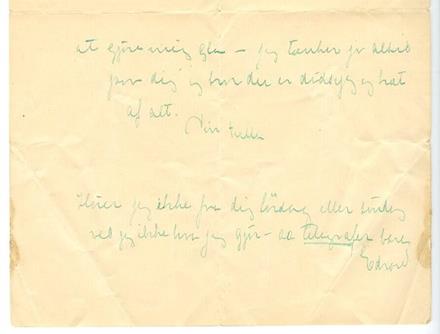 at gjøre mig gla – jeg tænker jo altid
paa dig og hvor du er dødssyg og træt
af alt.
Din
Hører jeg ikke fra dig lördag eller söndag
ved jeg ikke hva jeg gjør – saa telegrafer bare
Edvard